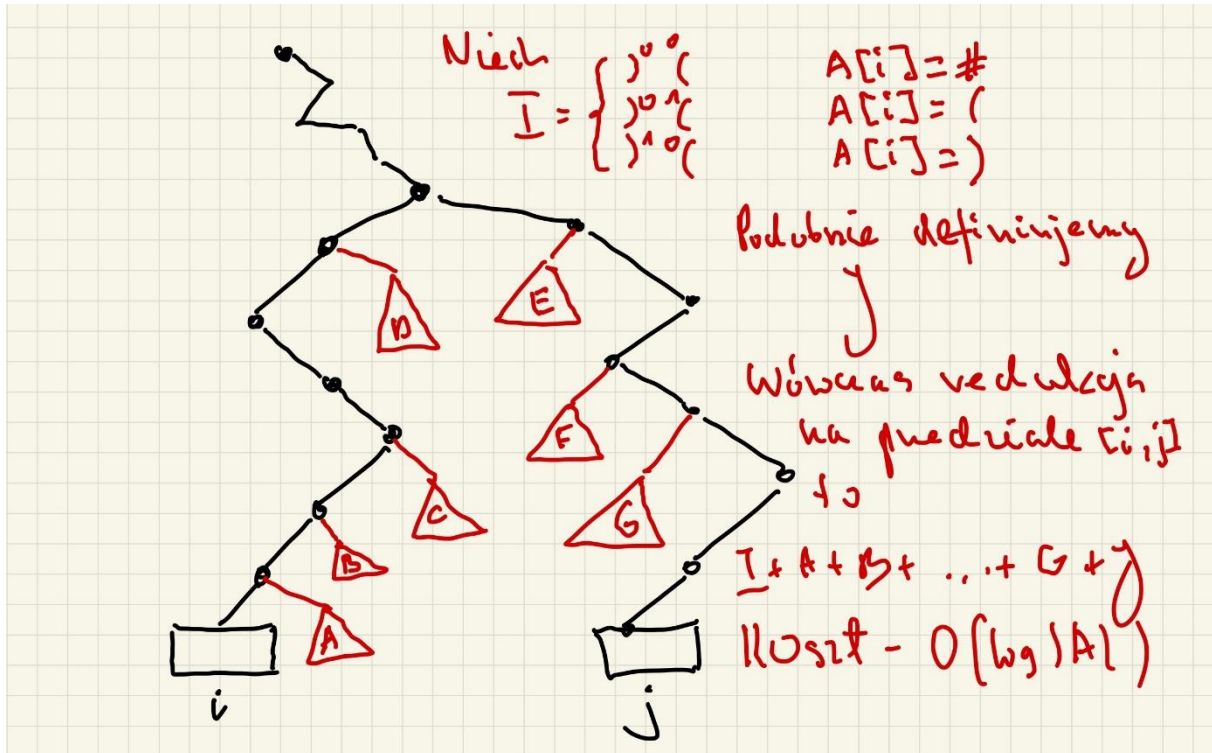 Niech
I = { )⁰ ⁰(   A[i] = #
)⁰ ¹(   A[i] = (
)¹ ⁰(   A[i] = )
Podobnie definiujemy
J
Wówczas redukcja
na przedziale [i,j]
to
I + A + B + ... + G + J
Koszt - O(log |A|)
D
E
F
C
G
B
A
i
j